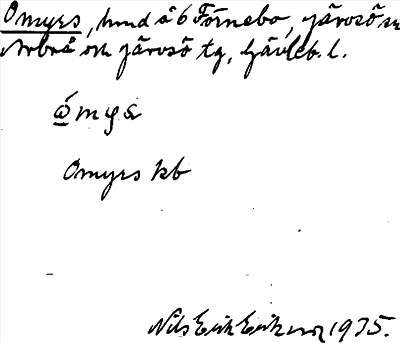 Omyrs, hemd å 6 Förnebo, Järvsö sn
Arbrå och Järvsö tg, Gävleb. l.
Omyrs kb
Nils Erik Eriksson 1935.